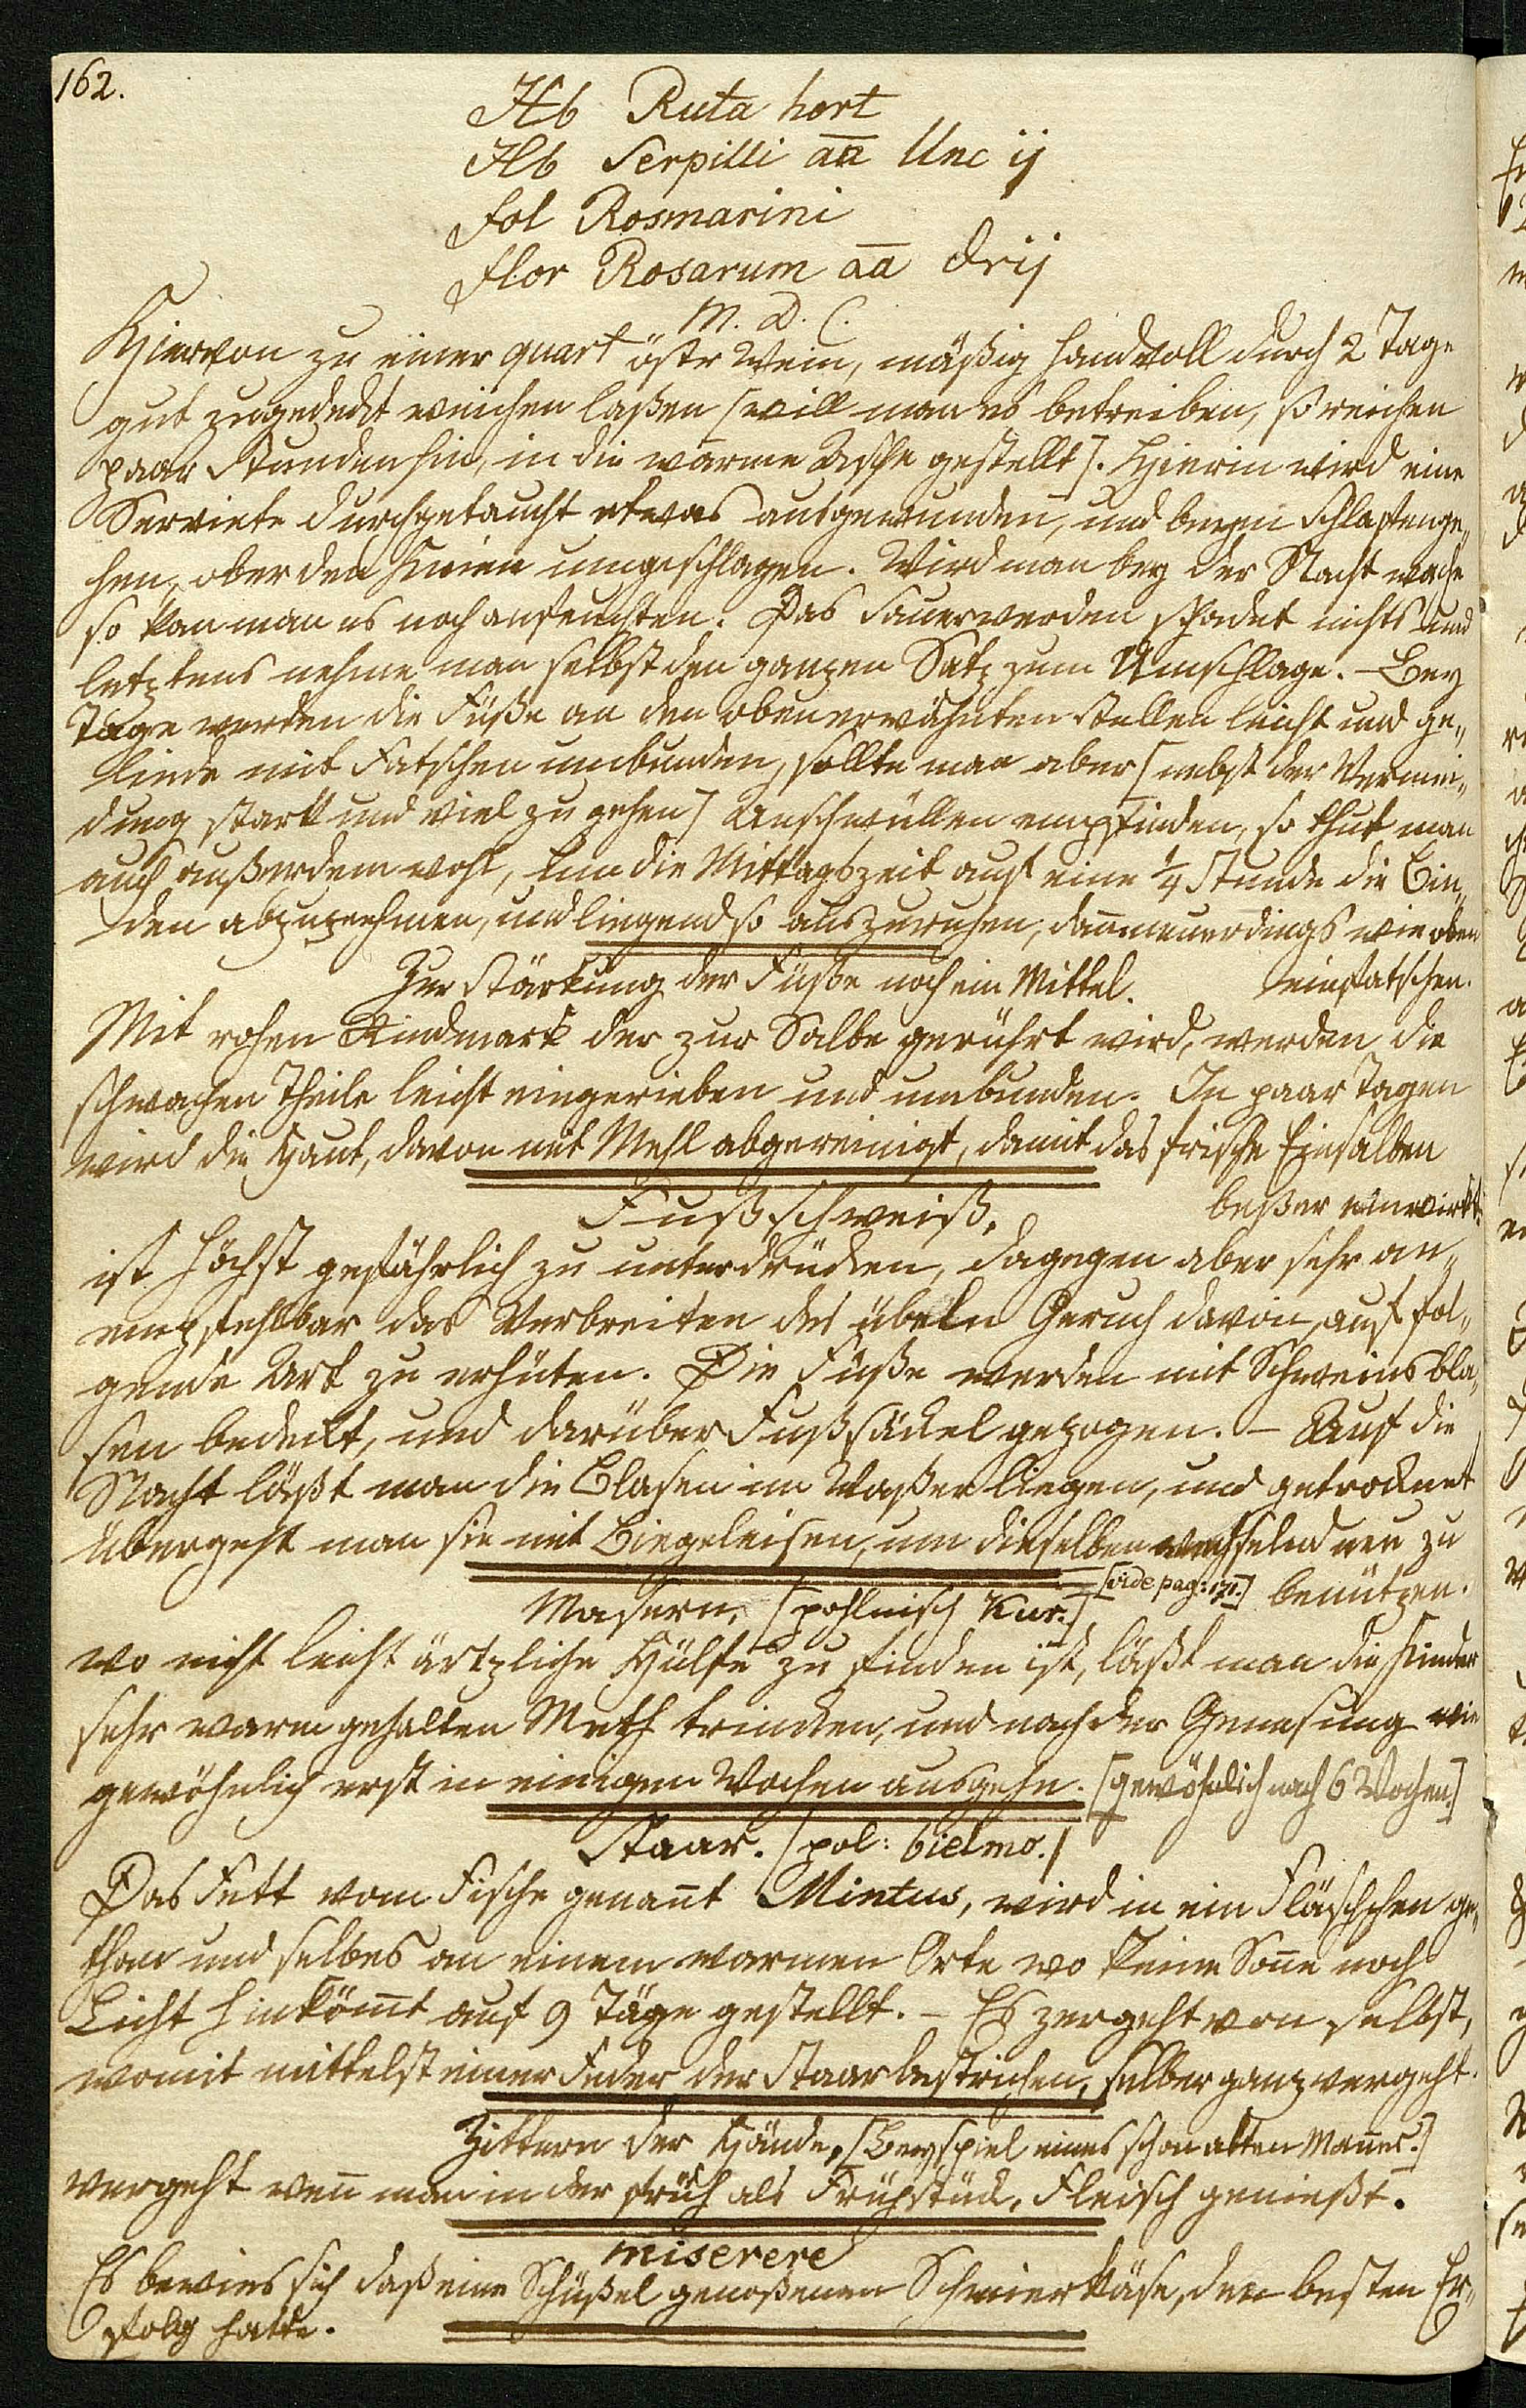 162.
Hb Ruta hort
Hb Serpilli aa Unc ij
fol Rosmarini
flor Rosarum aa drij
M. D. C.
Hiervon zu einer quart östr Wein, mäßig Handvoll durch 2 Tage
gut zugedeckt weichen laßen [will man es betreiben, so reichen
paar Stunden hin, in die warme Asche gestellt]. Hierin wird eine
Serviete durchgetaucht etwas ausgewunden, und beym Schlafenge„
hen, ober den Knien umgeschlagen. Wird man bey der Nacht wach
so kan man es noch anfeuchten. Das Sauerwerden schadet nichts und
letztens nehme man selbst den ganzen Satz zum Umschlage. – Bey
Tage werden die Füße an den obenerwähnten Stellen leicht und ge„
linde mit Fatschen umbunden, sollte man aber [nebst der Vermei„
dung stark und viel zu gehen] Anschwüllen empfinden, so thut man
auch außerdem wohl, um die Mittagszeit auf eine ¼ Stunde die Bin„
den abzunehmen, und liegend so auszuruhen, dann neuerdings wie oben
einfatschen.
Zur Stärkung der Füße noch ein Mittel.
Mit rohen Rindmark der zur Salbe gerührt wird, werden die
schwachen Theile leicht eingerieben und umbunden. In paar Tagen
wird die Haut, davon mit Mehl abgereinigt, damit das frische Einsalben
beßer einwirkt.
Fußschweiß.
ist höchst gefährlich zu unterdrücken, dagegen aber sehr an„
empfehlbar das Verbreiten des übeln Geruch davon, auf fol„
gende Art zu erhüten. Die Füße werden mit Schweinsbla„
sen bedeckt, und darüber Fußsäckel gezogen. – Auf die
Nacht läßt man die Blasen im Waßer liegen, und getrocknet
übergeht man sie mit Biegeleisen, um dieselben wechselnd neu zu
benützen.
Masern, [pohlnisch Kur.] [vide pag: 171.]
wo nicht leicht ärtzliche Hülfe zu finden ist, läßt man die Kinder
sehr warm gehalten Meth trincken, und nach der Genesung wie
gewöhnlich erst in einigen Wochen ausgehn. [gewöhnlich nach 6 Wochen.]
Staar. [pol: bielmo.]
Das Fett vom Fische genannt Mintus, wird in ein Fläschchen ge„
than und selbes an einem warmen Orte wo keine Sonne noch
Licht hinkömmt auf 9 Täge gestellt. – Es zergeht von selbst,
womit mittelst einer Feder der Staar bestrichen, selber ganz vergeht.
Zittern der Hände, [Beyspiel eines schon alten Mannes.]
vergeht wenn man in der früh als Frühstück, Fleisch genießt.
miserere
Es bewies sich daß eine Schüßel genoßenen Schmierkäse, den besten Er„
folg hatte.